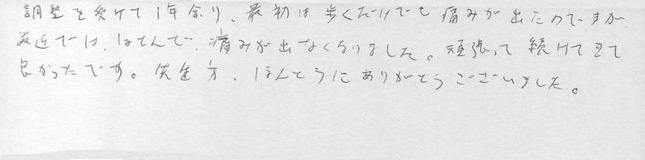 調整を受けて1年余り、最初は歩くだけでも痛みが出たのですが
最近では、ほとんど、痛みが出なくなりました。頑張って続けてきて
良かったです。先生方、ほんとうにありがとうございました。